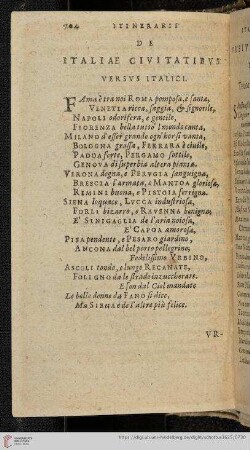 704 ITINERARII
DE
ITALIAE CIVITATIBVS
VERSVS ITALICI.
FAma è tra noi ROMA pomposa, e santa,
VENETIA ricca, saggia, & signorile,
NAPOLI odorifera, e gentile,
FIORENZA bella tutto'l mondo canta,
MILANO d'esser grande ogn'hor si vanta,
BOLOGNA grassa, FERRARA è ciuile,
PADOA forte, BERGAMO sottile,
GENOVA di superbia altera pianta.
VERONA degna, e PERVGIA sanguigna,
BRESCIA l'armata, e MANTOA gloriosa,
REMINI buona, e PISTOIA ferrigna.
SIENA loquace, LVCCA industriosa,
FORLI bizarro, e RAVENNA benigna,
E' SINIGAGLIA de l'aria noiosa,
E' CAPOA amorosa,
PISA pendente, e PESARO giardino,
ANCONA dal bel porto pellegrino,
Fedelissimo VRBINO,
ASCOLI tondo, e lungo RECANATE,
FOLIGNO da le strade inzuccarate.
E son dal Ciel mandate
Le belle donne da FANO si dice,
Ma SIENA è de l'altre più felice.
VR-